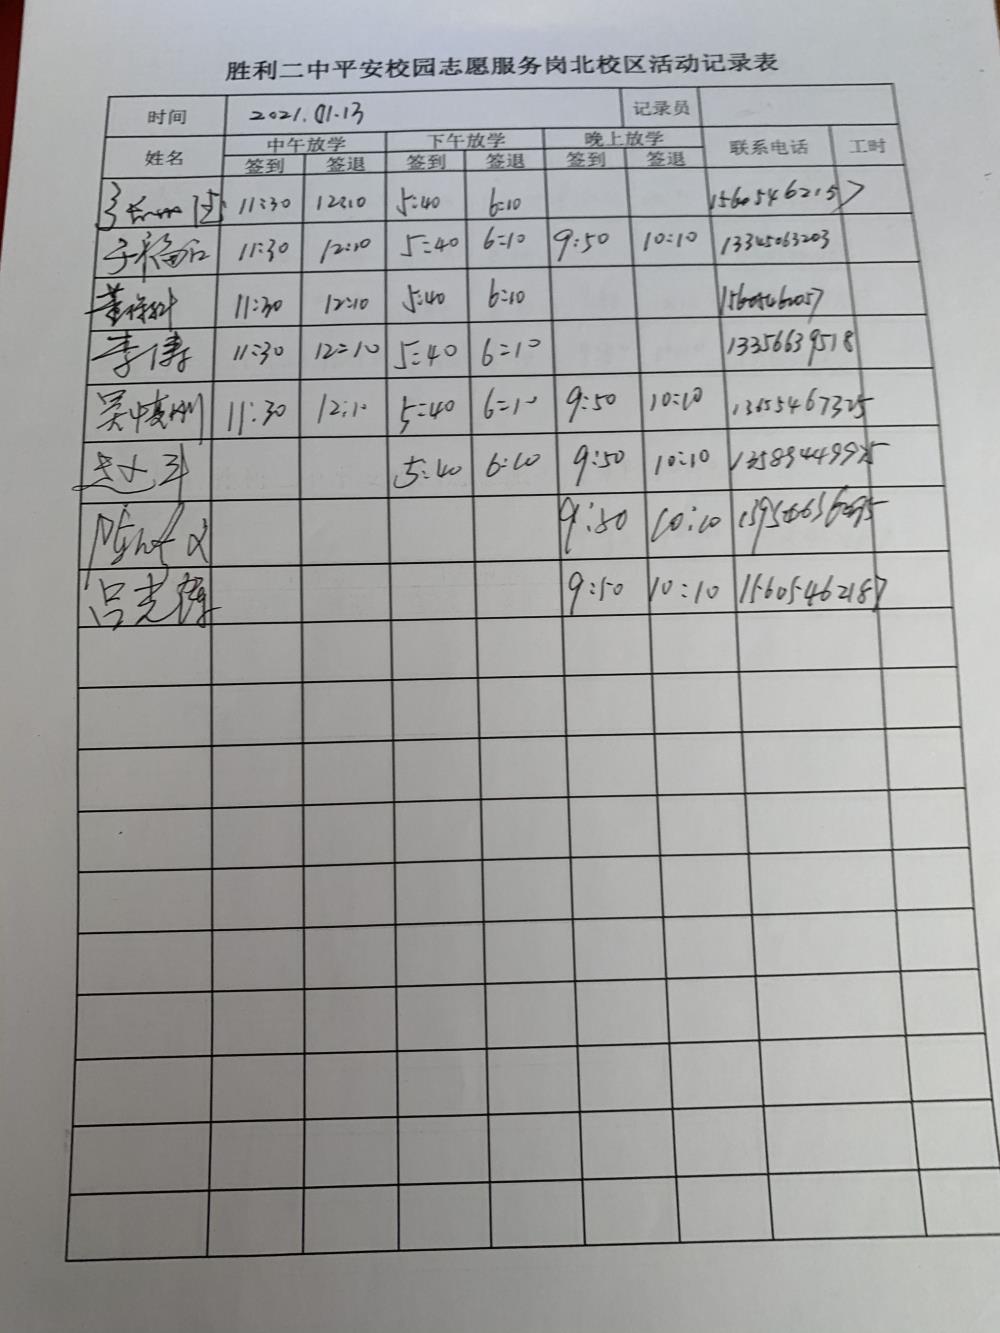 胜利二中平安校园志愿服务岗北校区活动记录表
时间 2021.01.13 记录员
姓名 中午放学 下午放学 晚上放学 联系电话 工时
签到 签退 签到 签退 签到 签退
11:30 12:10 5:40 6:10 15605462157
11:30 12:10 5:40 6:10 9:50 10:10 13345063203
11:30 12:10 5:40 6:10 15605462057
李倩 11:30 12:10 5:40 6:10 13356639518
11:30 12:10 5:40 6:10 9:50 10:10 13655467325
5:40 6:10 9:50 10:10 13589449975
9:50 10:10
吕光辉 9:50 10:10 15605462187